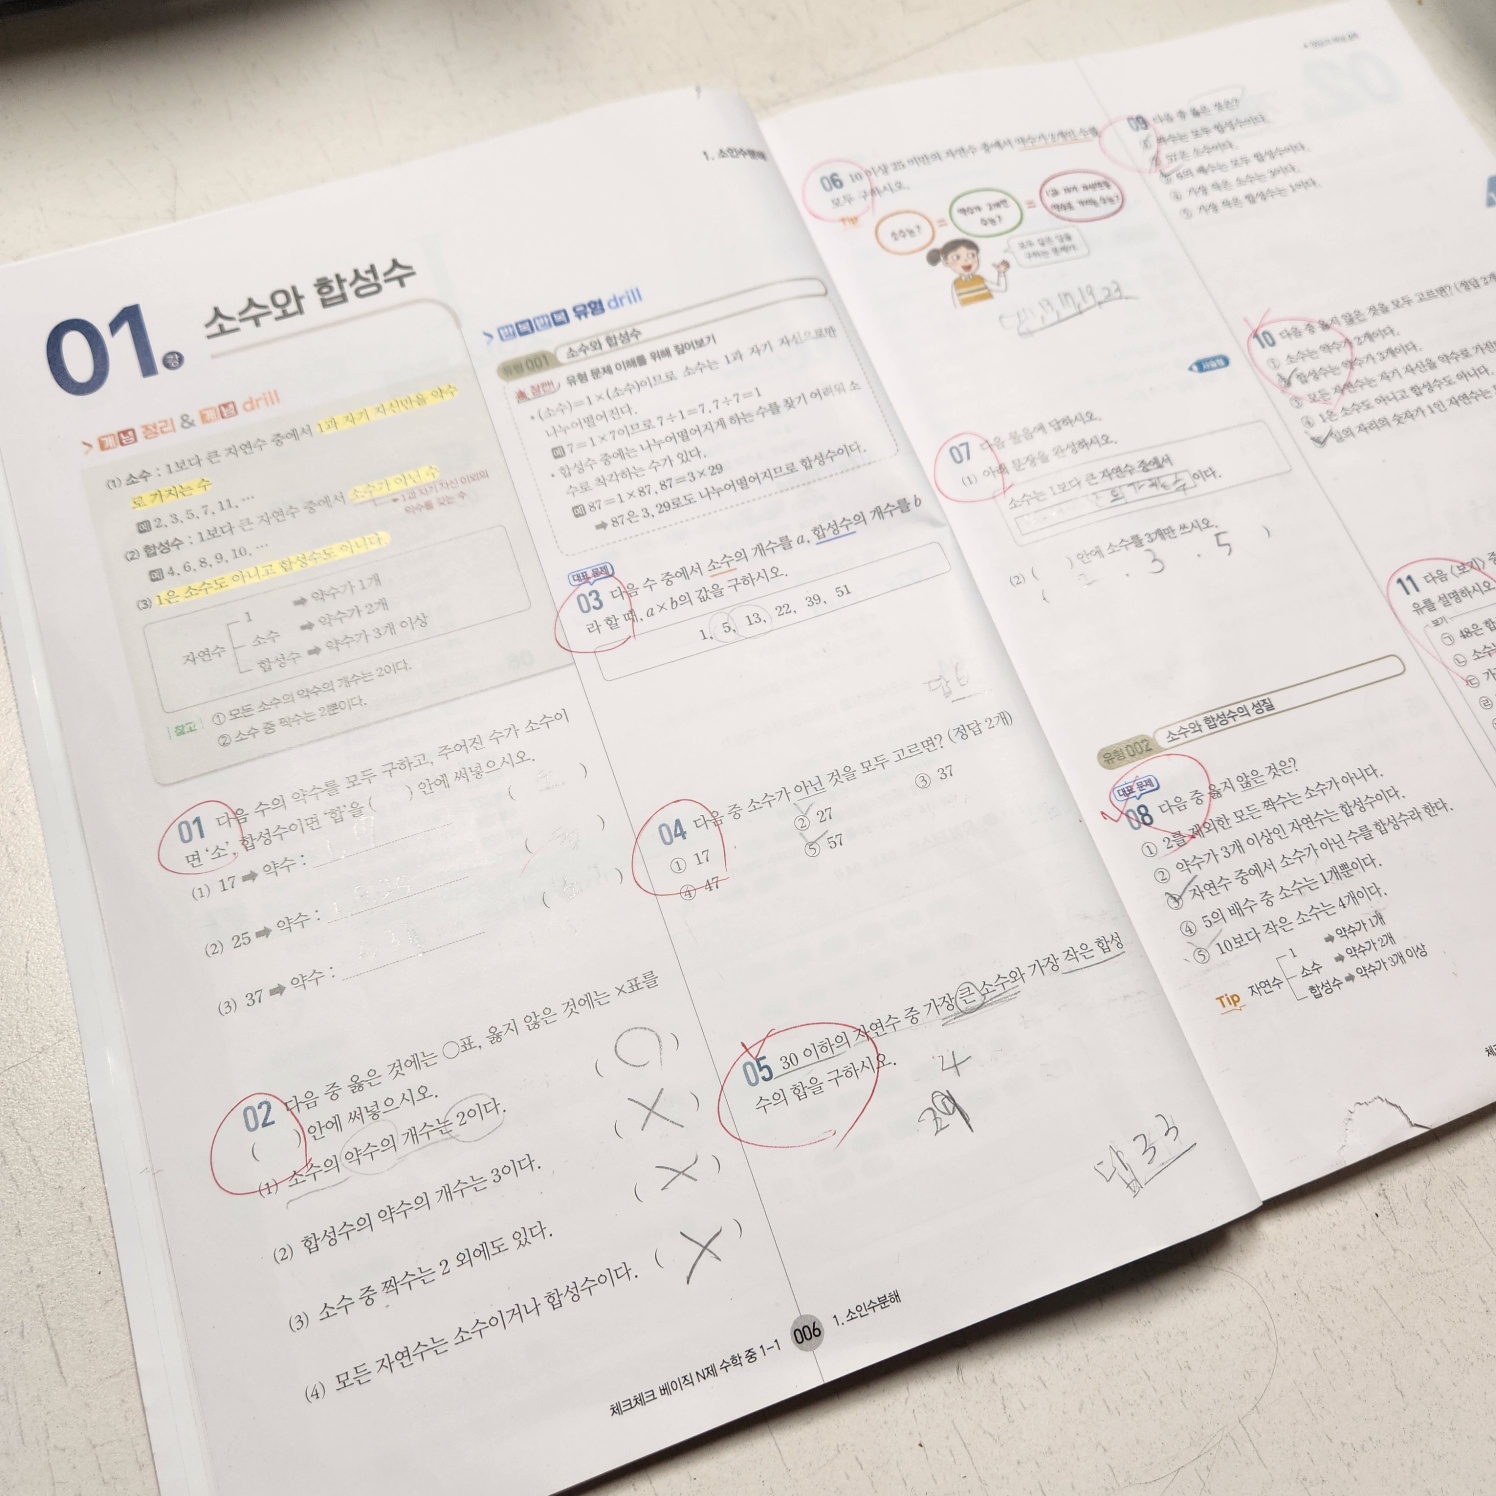 1. 소인수분해
01강 소수와 합성수
개념 정리 & 개념 drill
(1) 소수 : 1보다 큰 자연수 중에서 1과 자기 자신만을 약수
로 가지는 수
예 2, 3, 5, 7, 11, …
(2) 합성수 : 1보다 큰 자연수 중에서 소수가 아닌 수
➡ 1과 자기 자신 이외의
약수를 갖는 수
예 4, 6, 8, 9, 10, …
(3) 1은 소수도 아니고 합성수도 아니다.
자연수
1 ➡ 약수가 1개
소수 ➡ 약수가 2개
합성수 ➡ 약수가 3개 이상
참고 ① 모든 소수의 약수의 개수는 2이다.
② 소수 중 짝수는 2뿐이다.
01 다음 수의 약수를 모두 구하고, 주어진 수가 소수이
면 '소', 합성수이면 '합'을 ( ) 안에 써넣으시오.
(1) 17 ➡ 약수 : ( )
(2) 25 ➡ 약수 : ( )
(3) 37 ➡ 약수 : ( )
02 다음 중 옳은 것에는 ○표, 옳지 않은 것에는 ×표를
( ) 안에 써넣으시오.
(1) 소수의 약수의 개수는 2이다. ( ○ )
(2) 합성수의 약수의 개수는 3이다. ( × )
(3) 소수 중 짝수는 2 외에도 있다. ( × )
(4) 모든 자연수는 소수이거나 합성수이다. ( × )
반복반복 유형 drill
유형 001 소수와 합성수
잠깐! 유형 문제 이해를 위해 짚어보기
• (소수)=1×(소수)이므로 소수는 1과 자기 자신으로만
나누어떨어진다.
예 7=1×7이므로 7÷1=7, 7÷7=1
• 합성수 중에는 나누어떨어지게 하는 수를 찾기 어려워 소
수로 착각하는 수가 있다.
예 87=1×87, 87=3×29
➡ 87은 3, 29로도 나누어떨어지므로 합성수이다.
대표 문제
03 다음 수 중에서 소수의 개수를 a, 합성수의 개수를 b
라 할 때, a×b의 값을 구하시오.
1, 5, 13, 22, 39, 51
답 6
04 다음 중 소수가 아닌 것을 모두 고르면? (정답 2개)
① 17 ② 27 ③ 37
④ 47 ⑤ 57
05 30 이하의 자연수 중 가장 큰 소수와 가장 작은 합성
수의 합을 구하시오.
4
29
답 33
체크체크 베이직 N제 수학 중 1-1 006 1. 소인수분해
06 10 이상 25 미만의 자연수 중에서 약수가 2개인 수를
모두 구하시오.
Tip
소수는?
=
약수가 2개인
수는?
=
1과 자기 자신만을
약수로 가지는 수는?
모두 같은 답을
구하는 문제야.
13, 17, 19, 23
서술형
07 다음 물음에 답하시오.
(1) 아래 문장을 완성하시오.
소수는 1보다 큰 자연수 중에서
이다.
(2) ( ) 안에 소수를 3개만 쓰시오.
( 2 , 3 , 5 )
유형 002 소수와 합성수의 성질
대표 문제
08 다음 중 옳지 않은 것은?
① 2를 제외한 모든 짝수는 소수가 아니다.
② 약수가 3개 이상인 자연수는 합성수이다.
③ 자연수 중에서 소수가 아닌 수를 합성수라 한다.
④ 5의 배수 중 소수는 1개뿐이다.
⑤ 10보다 작은 소수는 4개이다.
Tip 자연수
1 ➡ 약수가 1개
소수 ➡ 약수가 2개
합성수 ➡ 약수가 3개 이상
09 다음 중 옳은 것은?
① 짝수는 모두 합성수이다.
② 57은 소수이다.
③ 6의 배수는 모두 합성수이다.
④ 가장 작은 소수는 3이다.
⑤ 가장 작은 합성수는 1이다.
10 다음 중 옳지 않은 것을 모두 고르면? (정답 2개
① 소수는 약수가 2개이다.
② 합성수는 약수가 3개이다.
③ 모든 자연수는 자기 자신을 약수로 가진
④ 1은 소수도 아니고 합성수도 아니다.
⑤ 일의 자리의 숫자가 1인 자연수는
11 다음 〈보기〉 중
유를 설명하시오.
보기
㉠ 48은 합
㉡ 소수
㉢ 가
㉣
체크